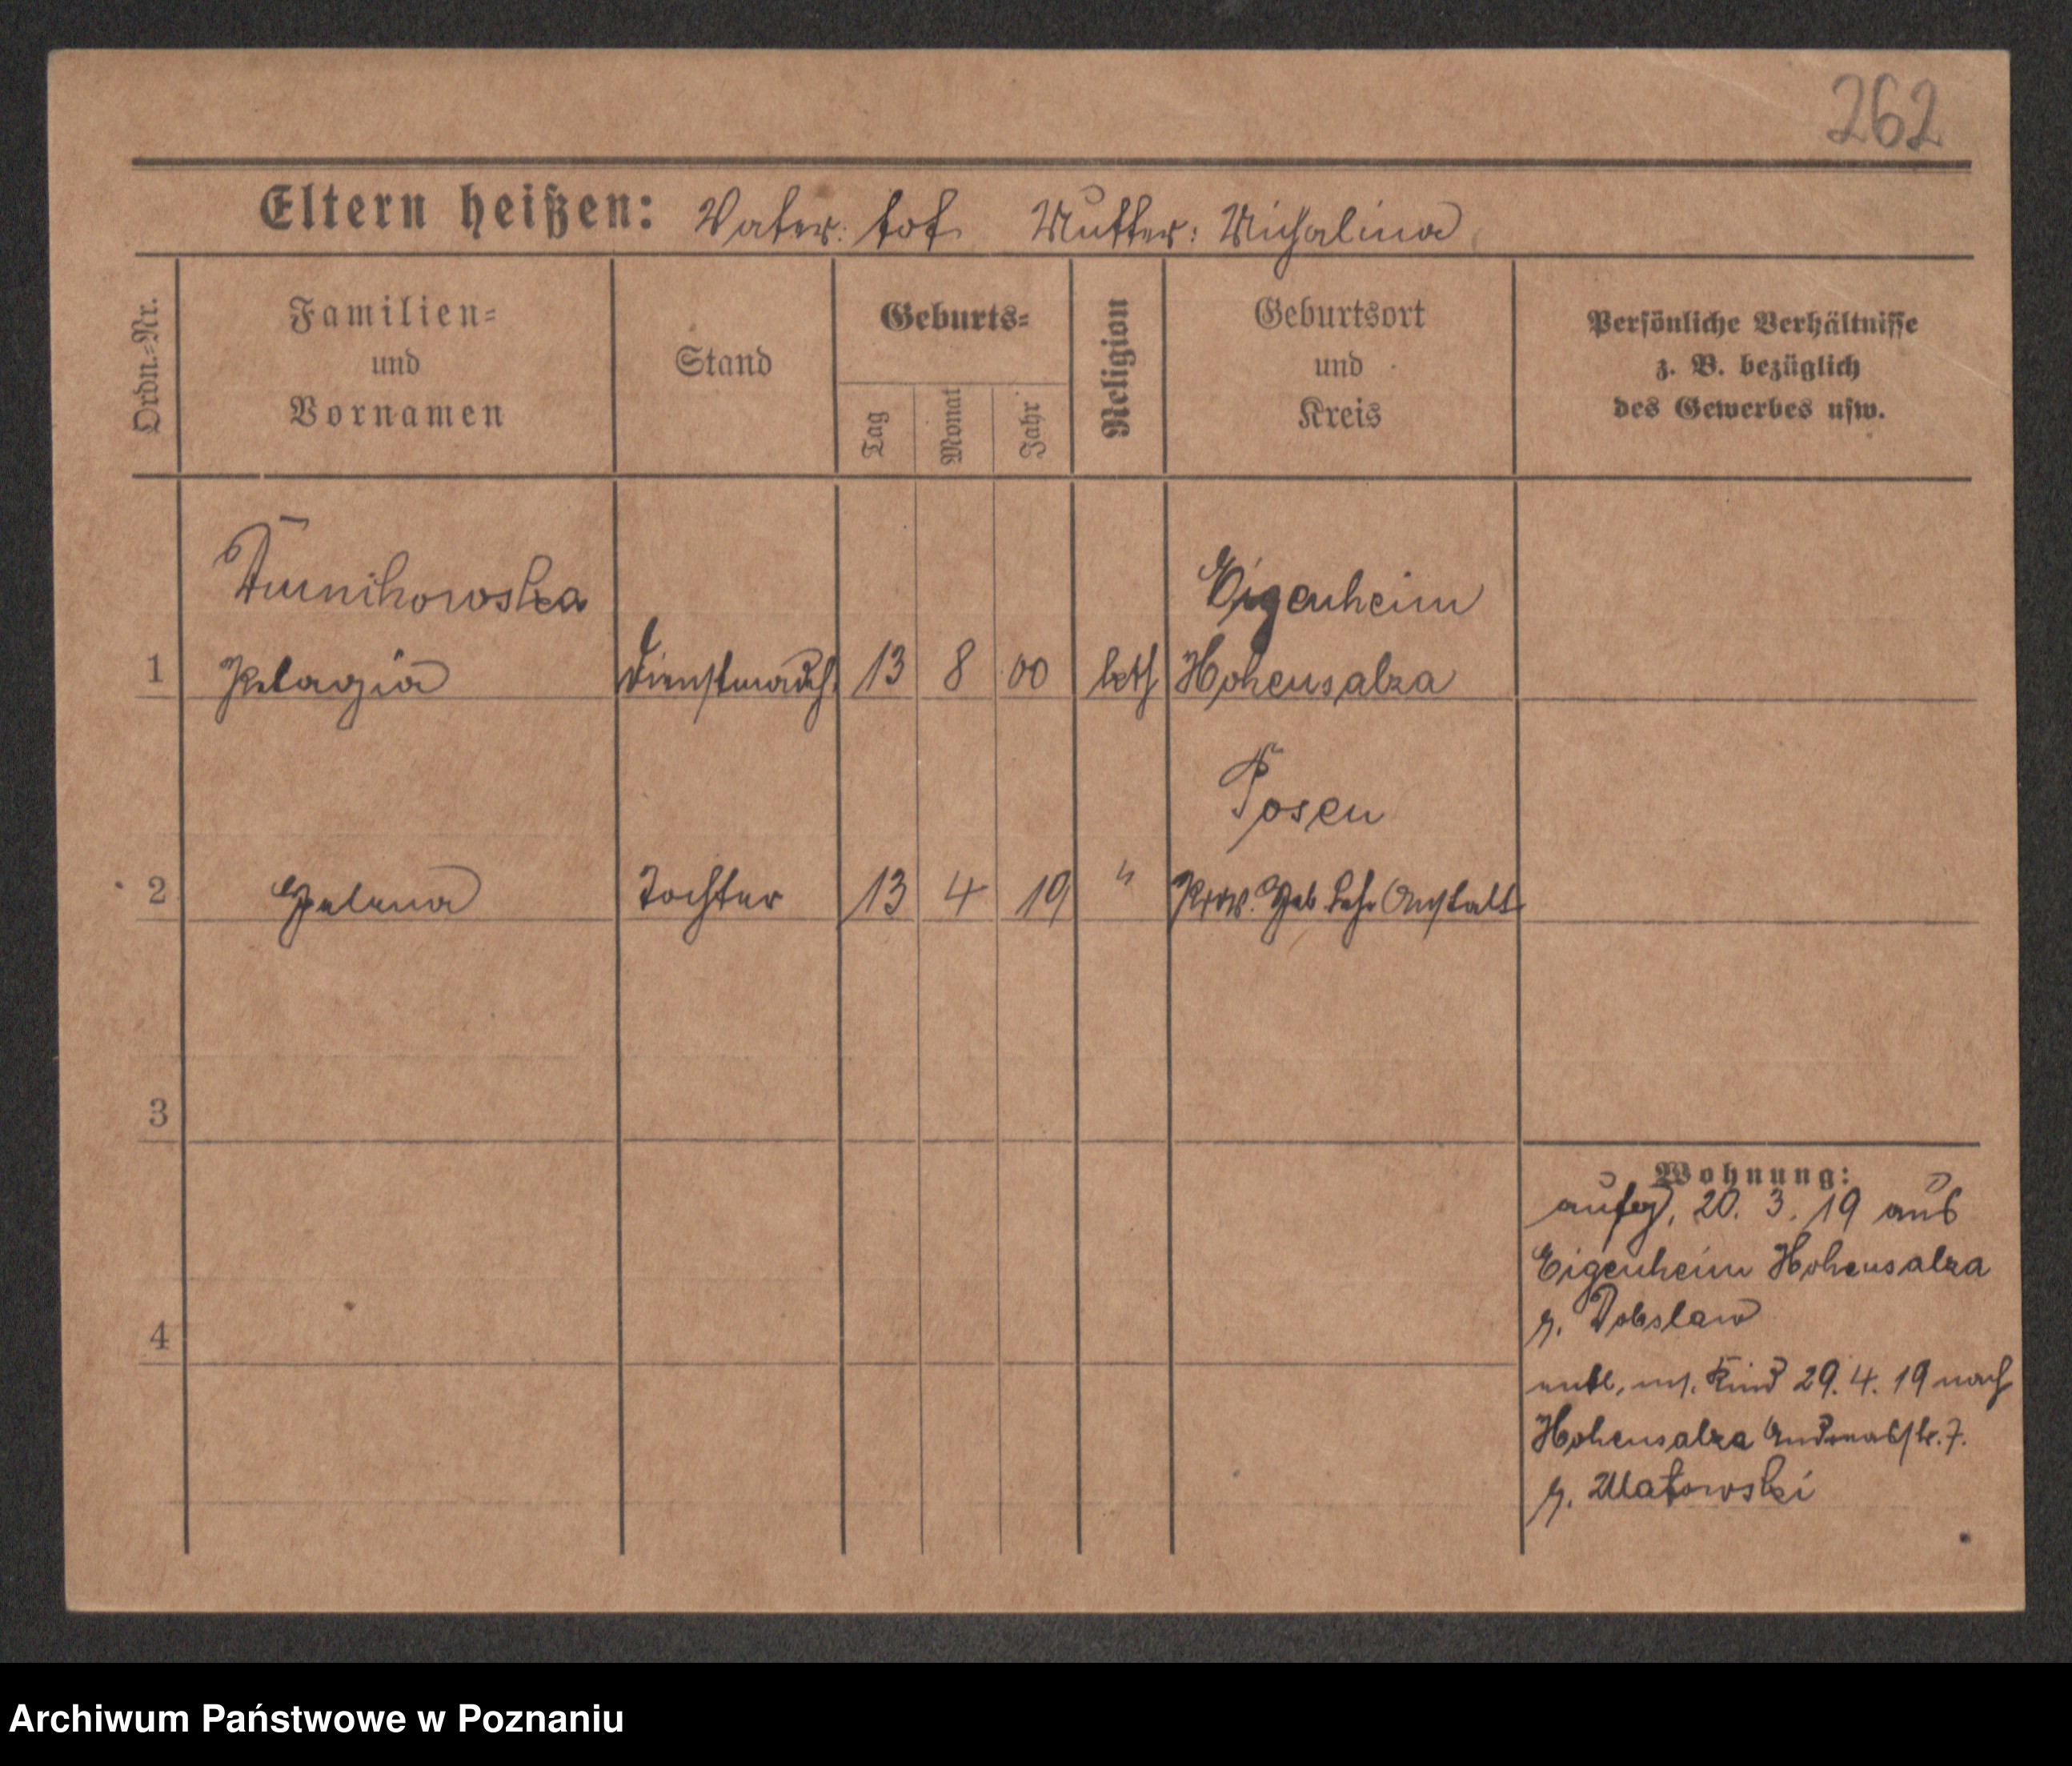 262
Eltern heißen: Vater: tot Mutter: Michalina
Ordn.-Nr.
Familien-
und
Vornamen
Stand
Geburts-
Tag
Monat
Jahr
Religion
Geburtsort
und
Kreis
Persönliche Verhältnisse
z. B. bezüglich
des Gewerbes usw.
Eigenheim
1 Pelagia Dienstmädch. 13 8 00 kath Hohensalza
Posen
2 Helena Tochter 13 4 19 " Prov. Heb. Lehr Anstalt
3
4
Wohnung:
aufg. 20. 3. 19 aus
Eigenheim Hohensalza
b. Dobslaw
entl. m. Kind 29. 4. 19 nach
Hohensalza Andreasstr. 7.
b.
Archiwum Państwowe w Poznaniu